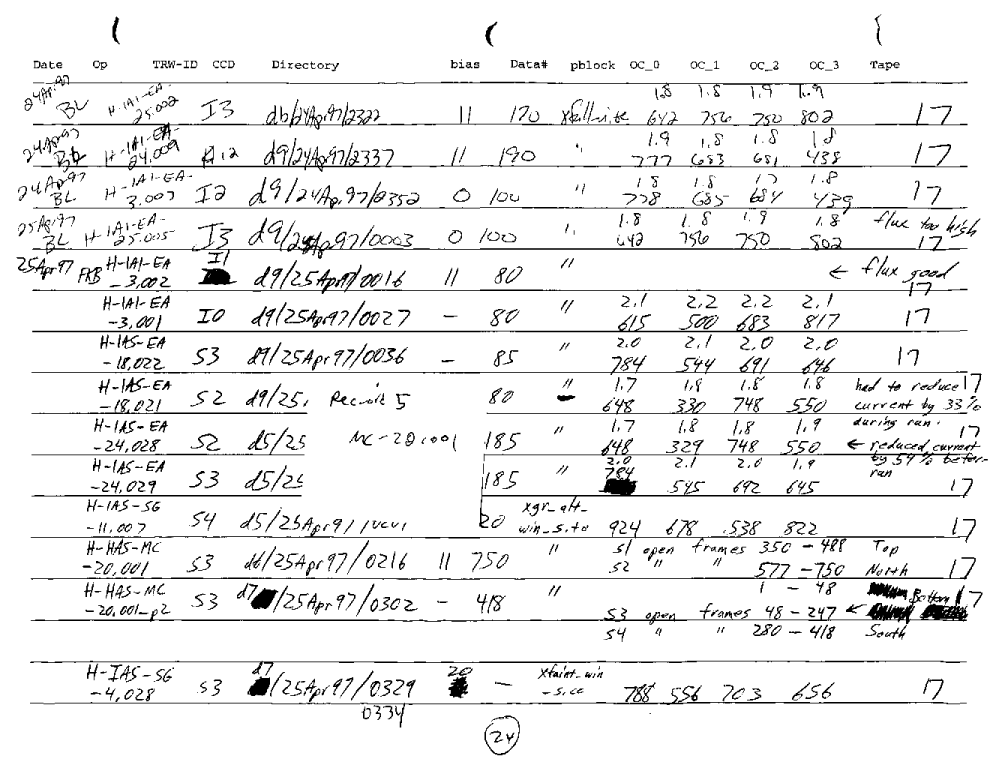 Date Op TRW-ID CCD Directory bias Data# pblock OC_0 OC_1 OC_2 OC_3 Tape
24Apr97 BL H-IAI-EA- 25.002 I3 d6/24Apr97/2322 11 170 1.8 1.8 1.9 1.9
642 756 750 802 17
24Apr97 BL H-IAI-EA- 24.009 I2 d9/24Apr97/2337 11 190 " 1.9 1.8 1.8 1.8
777 683 681 438 17
24Apr97 BL H-IAI-EA- 3.007 I2 d9/24Apr97/2352 0 100 " 1.8 1.8 1.7 1.8
778 685 684 439 17
25Apr97 BL H-IAI-EA- 25.005 I3 d9/24Apr97/0003 0 100 " 1.8 1.8 1.9 1.8 flux too high
642 756 750 802 17
25Apr97 FKB H-IAI-EA -3,002 I1 d9/25Apr97/0016 11 80 " ← flux good
17
H-IAI-EA -3,001 I0 d9/25Apr97/0027 - 80 " 2.1 2.2 2.2 2.1
615 500 683 817 17
H-IAS-EA -18,022 S3 d9/25Apr97/0036 - 85 " 2.0 2.1 2.0 2.0
784 544 691 646 17
H-IAS-EA -18,021 S2 d9/25, 80 " 1.7 1.8 1.8 1.8 had to reduce 17
648 330 748 550 current by 33%
during run.
H-IAS-EA -24,028 S2 d5/25 185 " 1.7 1.8 1.8 1.9 17
648 329 748 550 ← reduced current
by 54% before
ran
H-IAS-EA -24,029 S3 d5/25 185 " 2.0 2.1 2.0 1.9
784 545 692 645 17
H-IAS-SG -11.007 S4 d5/25Apr9 20 xgr_alt-
win_s.to 924 678 .538 822 17
H-HAS-MC -20,001 S3 d6/25Apr97/0216 11 750 " S1 open frames 350 - 488 Top
S2 " " 577 - 750 North 17
H-HAS-MC -20,001-p2 S3 d7 /25Apr97/0302 - 418 " 1 - 48 Bottom 17
S3 open frames 48 - 247 ←
S4 " " 280 - 418 South
H-IAS-SG -4,028 S3 d7 /25Apr97/0329 20 - xfaint_win
-s.cc 788 556 703 656 17
0334
24